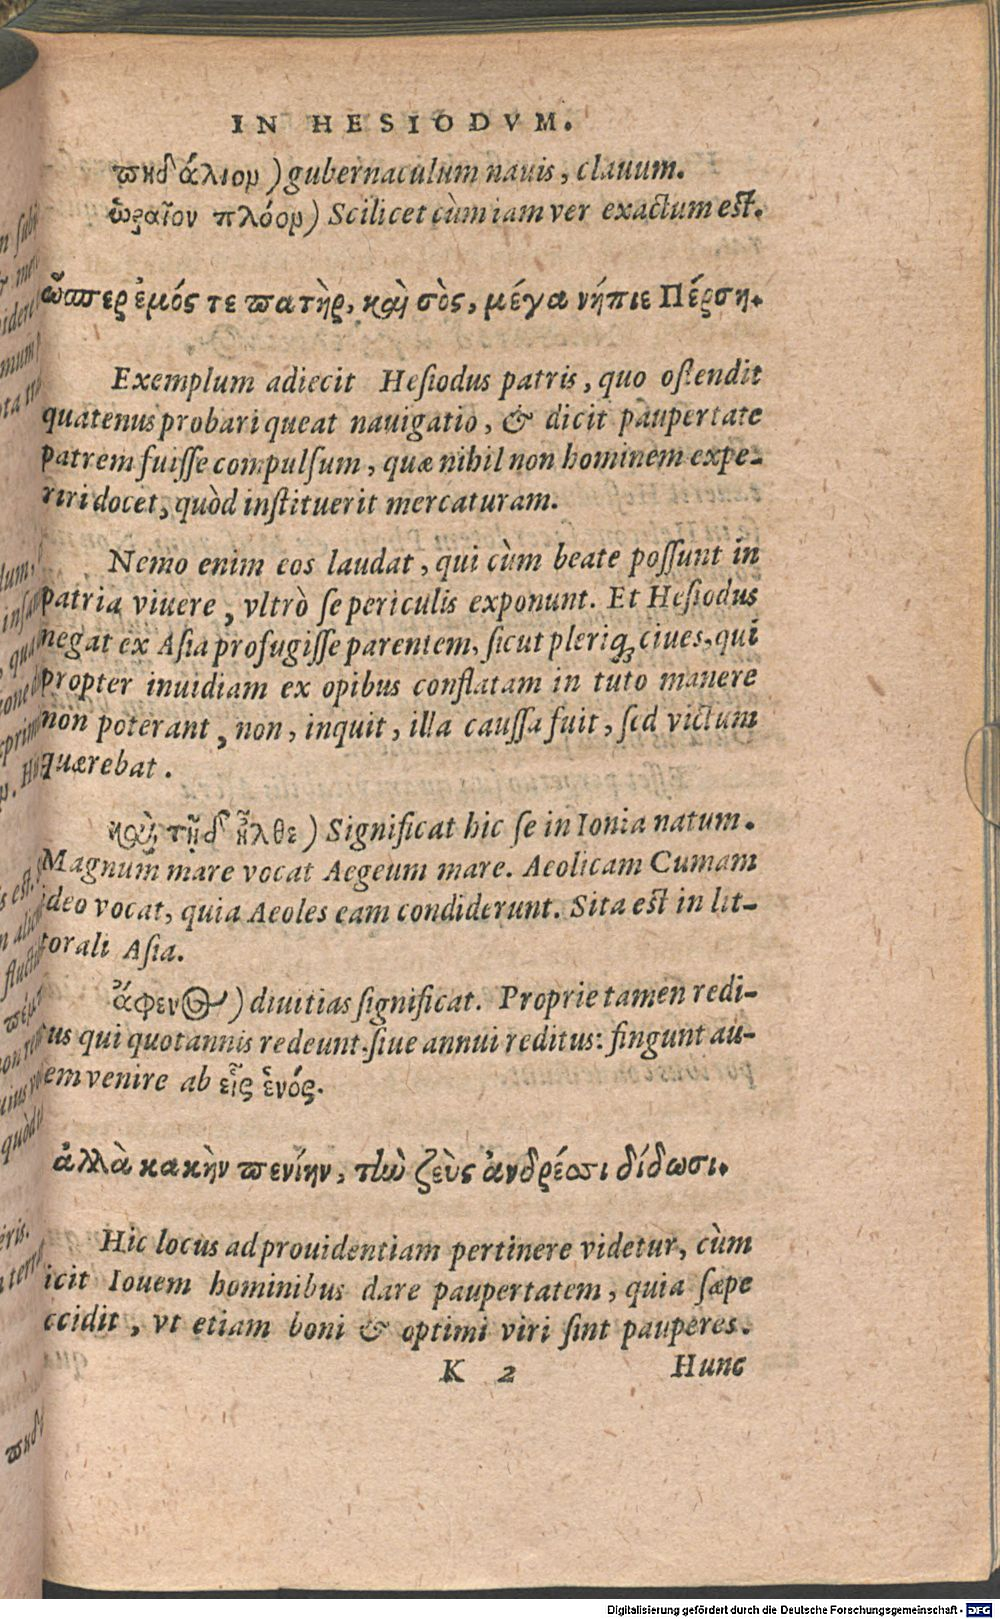 IN HESIODVM.
πηδάλιον) gubernaculum nauis, clauum.
ὡραῖον πλόον) Scilicet cùm iam ver exactum est.
ὥσπερ ἐμός τε πατὴρ, καὶ σὸς, μέγα νήπιε Πέρση.
Exemplum adiecit Hesiodus patris, quo ostendit
quatenus probari queat nauigatio, & dicit paupertate
patrem fuisse compulsum, quæ nihil non hominem expe-
riri docet, quòd instituerit mercaturam.
Nemo enim eos laudat, qui cùm beate possunt in
patria viuere, vltrò se periculis exponunt. Et Hesiodus
negat ex Asia profugisse parentem, sicut pleriq; ciues, qui
propter inuidiam ex opibus conflatam in tuto manere
non poterant, non, inquit, illa caussa fuit, sed victum
quærebat.
καὶ τῇδ ἦλθε) Significat hic se in Ionia natum.
Magnum mare vocat Aegeum mare. Aeolicam Cumam
ideo vocat, quia Aeoles eam condiderunt. Sita est in lit-
torali Asia.
ἄφενος) diuitias significat. Proprie tamen redi-
us qui quotannis redeunt. siue annui reditus: fingunt au-
em venire ab εἷς ἑνός.
ἀλλὰ κακὴν πενίην, τὴν ζεὺς ἀνδρέσσι δίδωσι.
Hic locus ad prouidentiam pertinere videtur, cùm
icit Iouem hominibus dare paupertatem, quia sæpe
ccidit, vt etiam boni & optimi viri sint pauperes.
K 2 Hunc
Digitalisierung gefördert durch die Deutsche Forschungsgemeinschaft - DFG